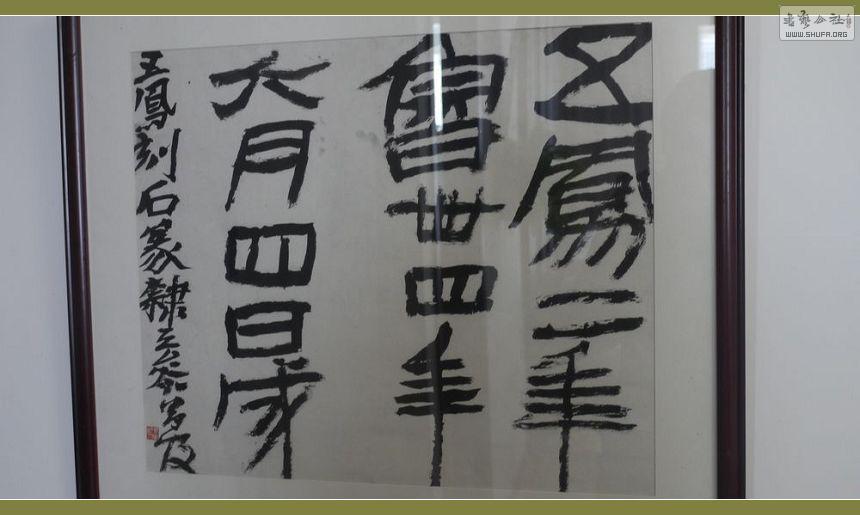 五鳳二年
魯卅四年
六月四日成
五鳳刻石篆隸
書艺公社
WWW.SHUFA.ORG